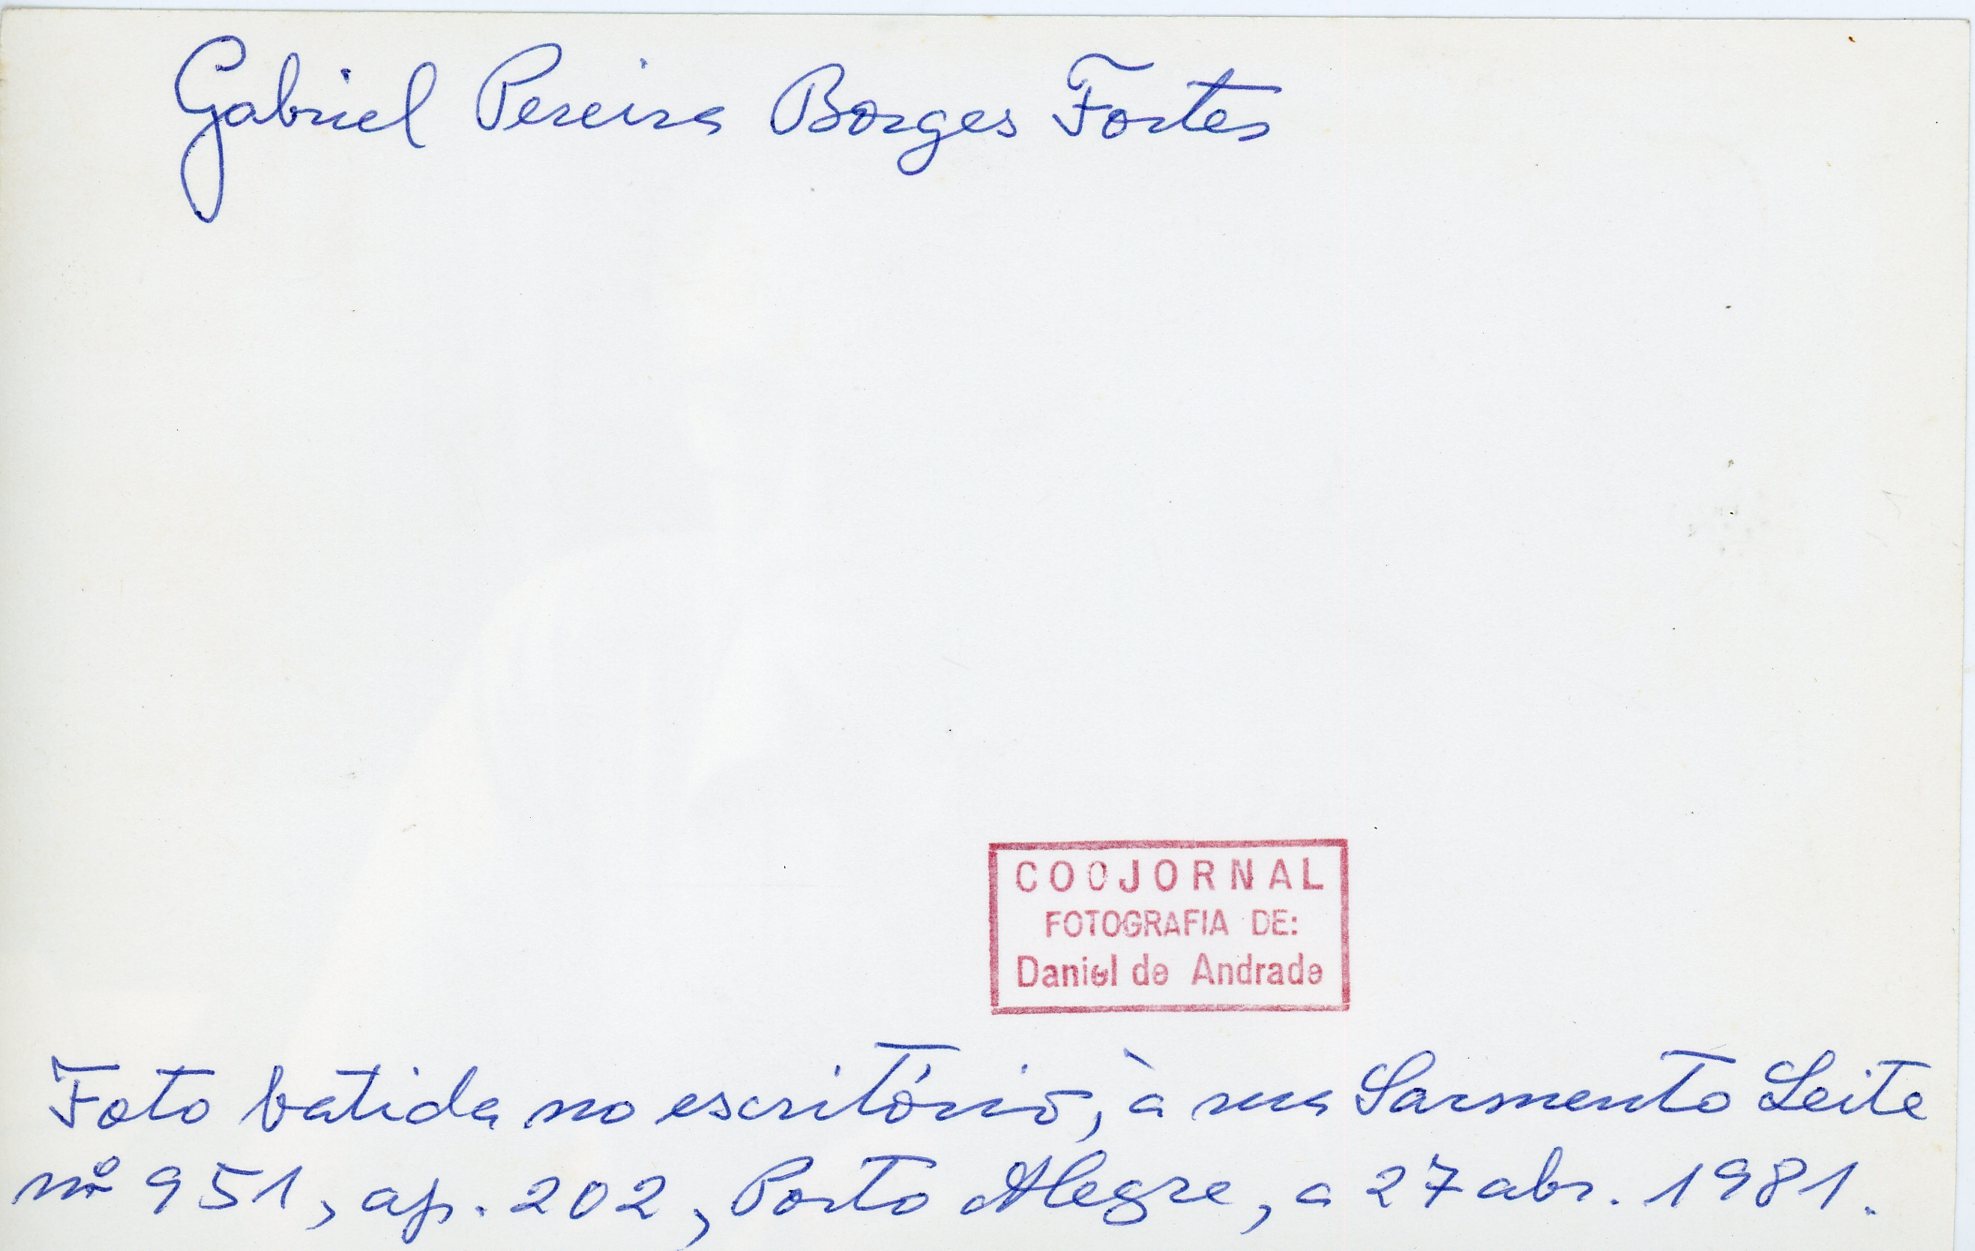 Gabriel Pereira Borges Fortes
COOJORNAL
FOTOGRAFIA DE:
Daniel de Andrade
Foto batida no escritório, à rua Sarmento Leite
nº 951, ap. 202, Porto Alegre, a 27 abr. 1981.